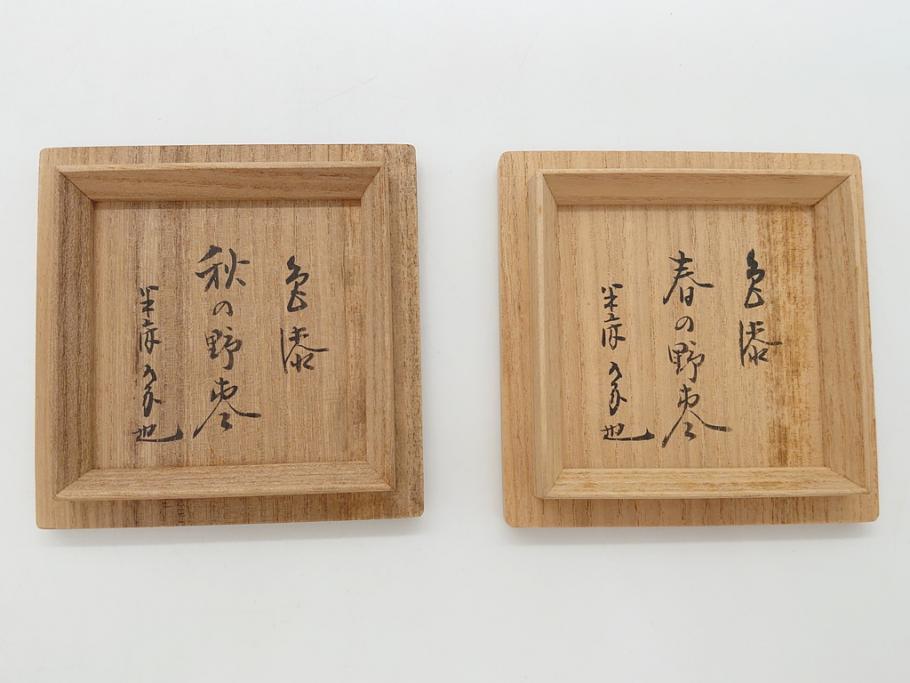 色漆
秋の野棗
半床
也
色漆
春の野棗
半床
也